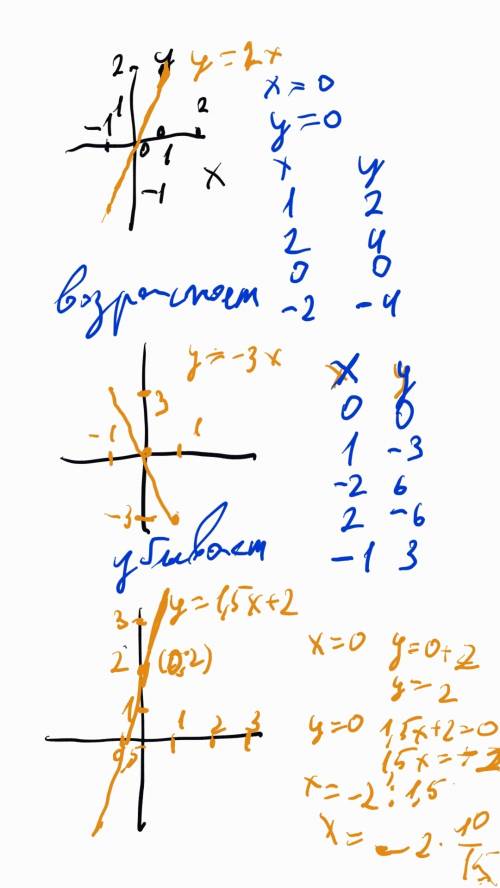 2 y y = 2x
1
-1 0 1 2
-1 x
x = 0
y = 0
x y
1 2
2 4
0 0
-2 -4
возрастает
y = -3x
3
-1 1
-3
x y
0 0
1 -3
-2 6
2 -6
-1 3
убывает
y = 1,5x+2
3
2 (0;2)
1
1 2 3
x=0 y=0+2
y=2
y=0 1,5x+2=0
1,5x=-2
x=-2:1,5
x=-2·10/15